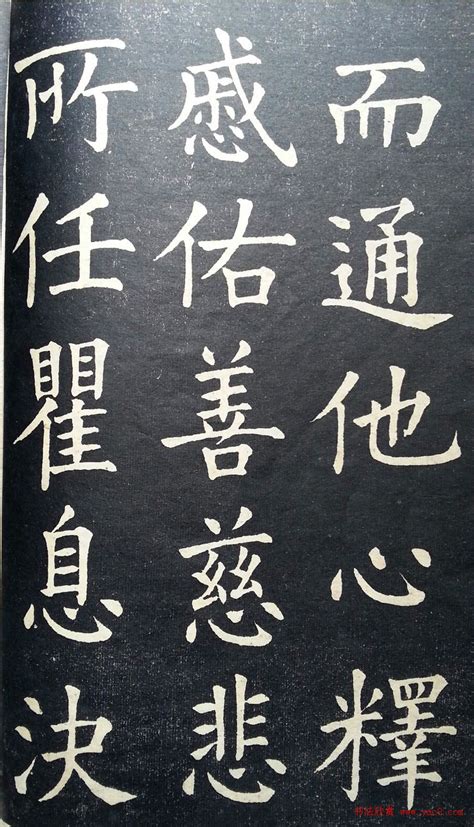 而通他心釋
戚佑善慈悲
所任瞿息決
书法欣赏 www.yac8.com